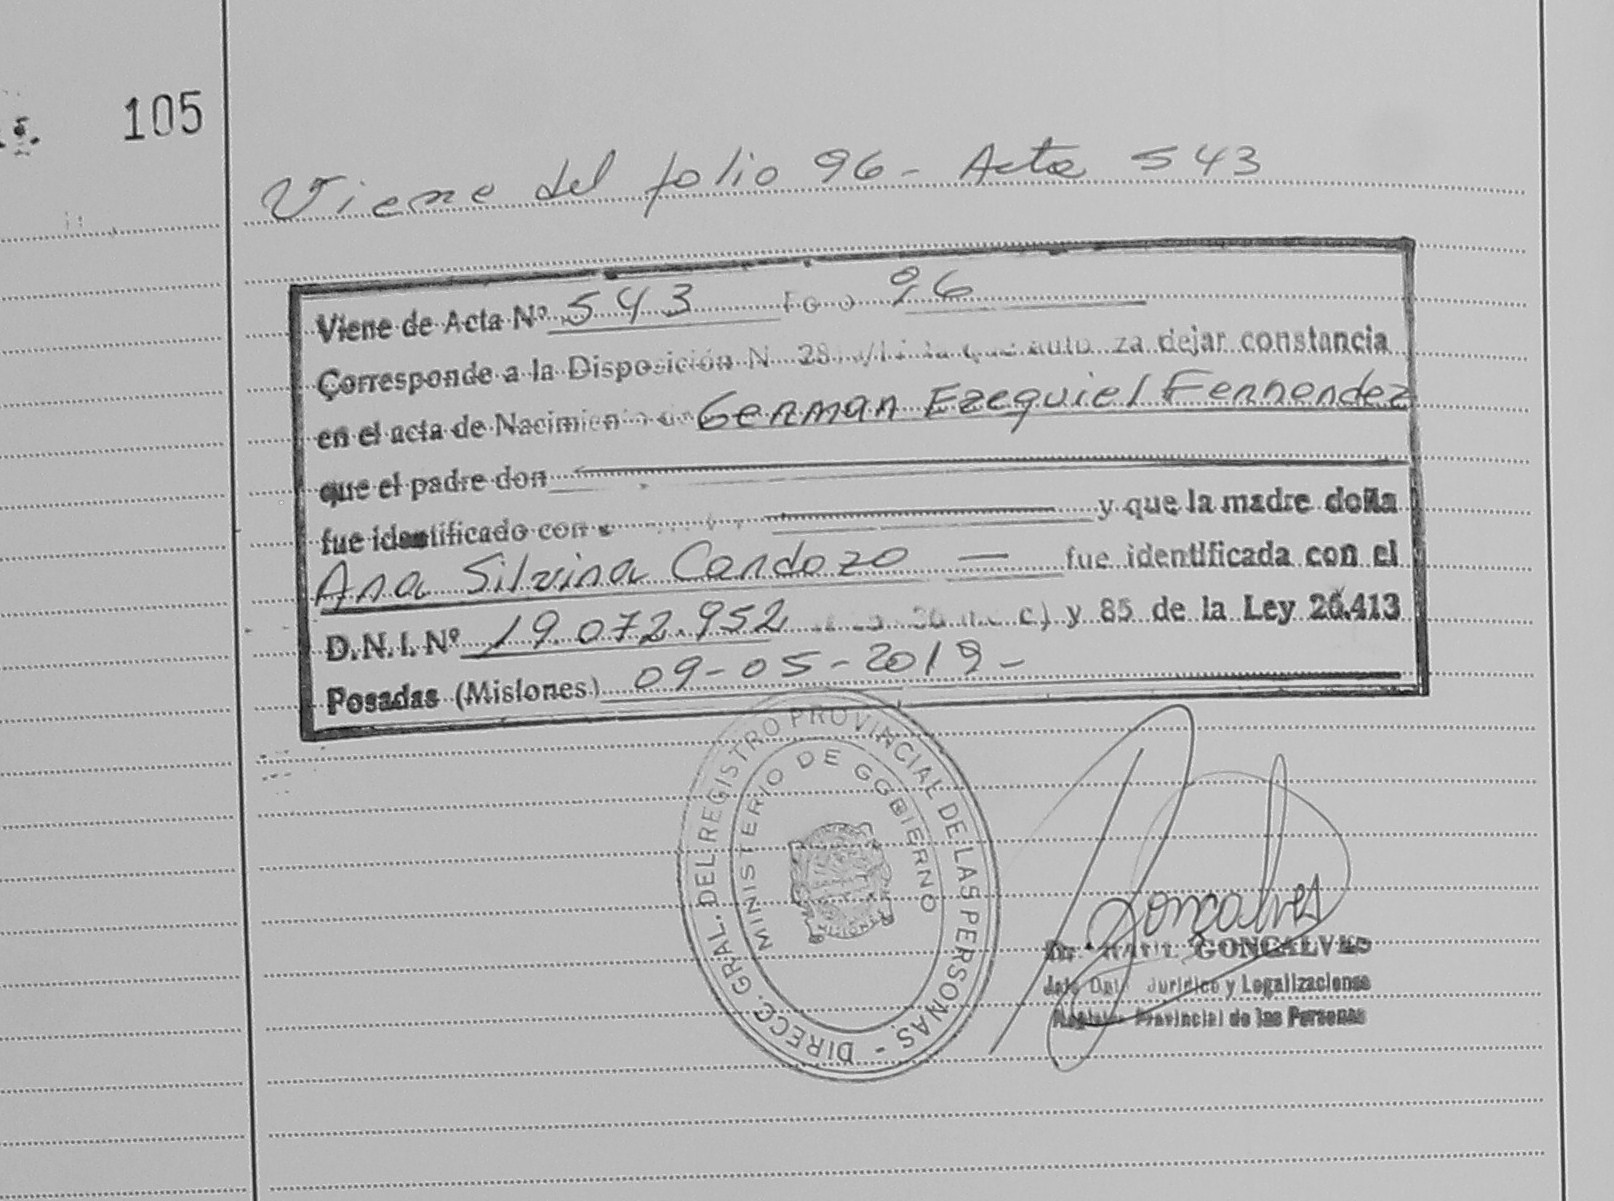 105
Viene del folio 96 - Acta 543
Viene de Acta Nº 543 Fo o 96
Corresponde a la Disposición N 28 la que auto za dejar constancia
en el acta de Nacimien German Ezequiel Fernandez
que el padre don
fue identificado con y que la madre doña
Ana Silvina Cardozo — fue identificada con el
D.N.I. Nº 19.072.952 c) y 85 de la Ley 26.413
Posadas (Misiones) 09-05-2019-
DIRECC. GRAL. DEL REGISTRO PROVINCIAL DE LAS PERSONAS -
MINISTERIO DE GOBIERNO
MISIONES
Gonçalves
Dr. RAUL GONCALVES
Jefe Dpt. Jurídico y Legalizaciones
Registro Provincial de las Personas